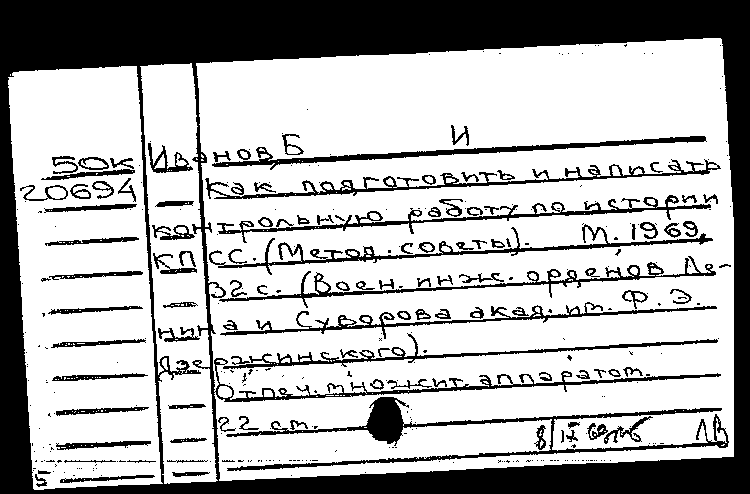 50к Иванов, Б И
20694 Как подготовить и написать
контрольную работу по истории
КПСС. (Метод. советы). М. 1969.
32 с. (Воен. инж. орденов Ле-
нина и Суворова акад. им. Ф. Э.
Дзержинского).
Отпеч. множит. аппаратом.
22 см.
8/IX 69 ЛВ
5